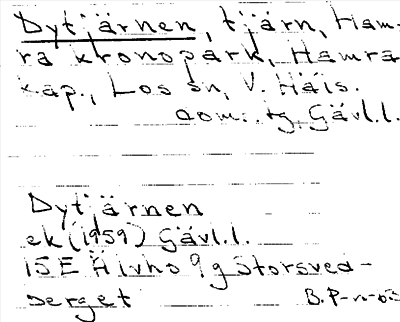 Dytjärnen, tjärn, Ham-
ra kronopark, Hamra
kap., Los sn, V. Häls.
dom. tg, Gävl.l.
Dytjärnen
ek (1959) Gävl.l.
15E Älvho 9g Storsved-
berget